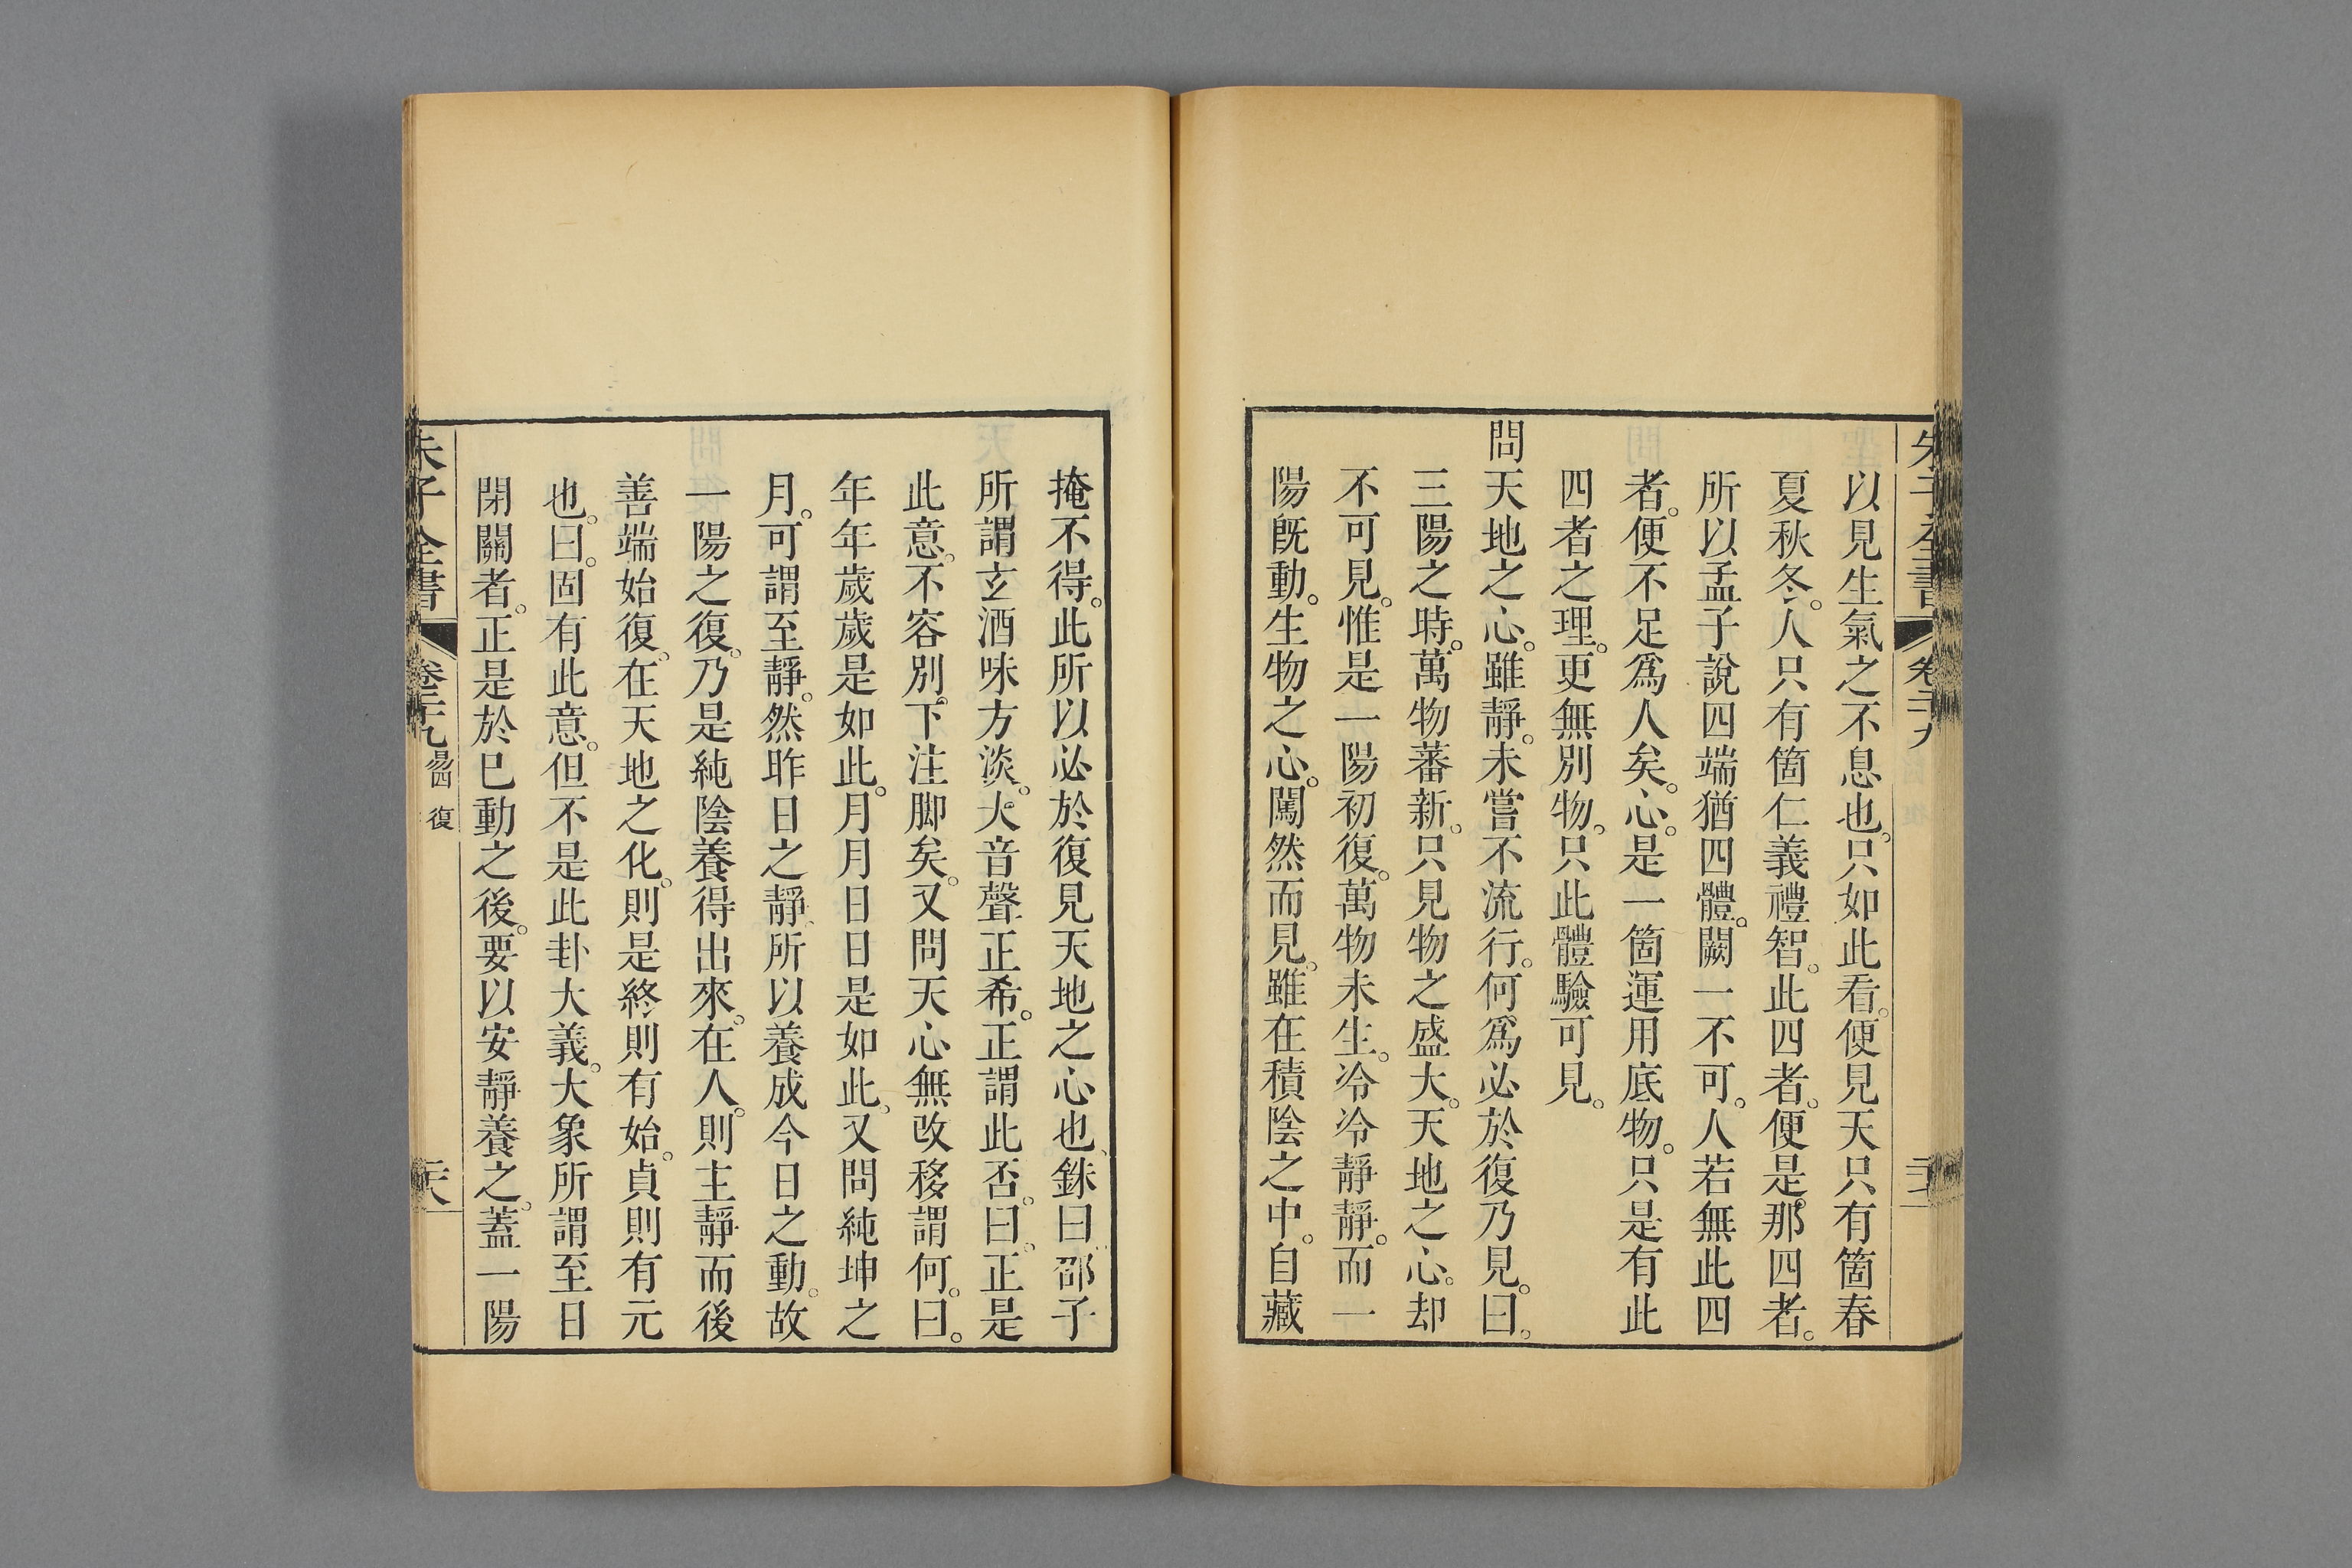 以見生氣之不息也。只如此看。便見天只有箇春
夏秋冬。人只有箇仁義禮智。此四者。便是那四者。
所以孟子說四端猶四體。闕一不可。人若無此四
者。便不足爲人矣。心。是一箇運用底物。只是有此
四者之理。更無別物。只此體驗可見。
問天地之心。雖靜。未嘗不流行。何爲必於復乃見。曰。
三陽之時。萬物蕃新。只見物之盛大。天地之心。却
不可見。惟是一陽初復。萬物未生。冷冷靜靜。而一
陽旣動。生物之心。闖然而見。雖在積陰之中。自藏
掩不得。此所以必於復見天地之心也。銖曰邵子
所謂玄酒味方淡。大音聲正希。正謂此否。曰。正是
此意。不容別下注脚矣。又問天心無改移謂何。曰。
年年歲歲是如此。月月日日是如此。又問純坤之
月。可謂至靜。然昨日之靜。所以養成今日之動。故
一陽之復。乃是純陰養得出來。在人。則主靜而後
善端始復。在天地之化。則是終則有始。貞則有元
也。曰。固有此意。但不是此卦大義。大象所謂至日
閉關者。正是於巳動之後。要以安靜養之。蓋一陽
朱子全書 卷二十九 易四 復